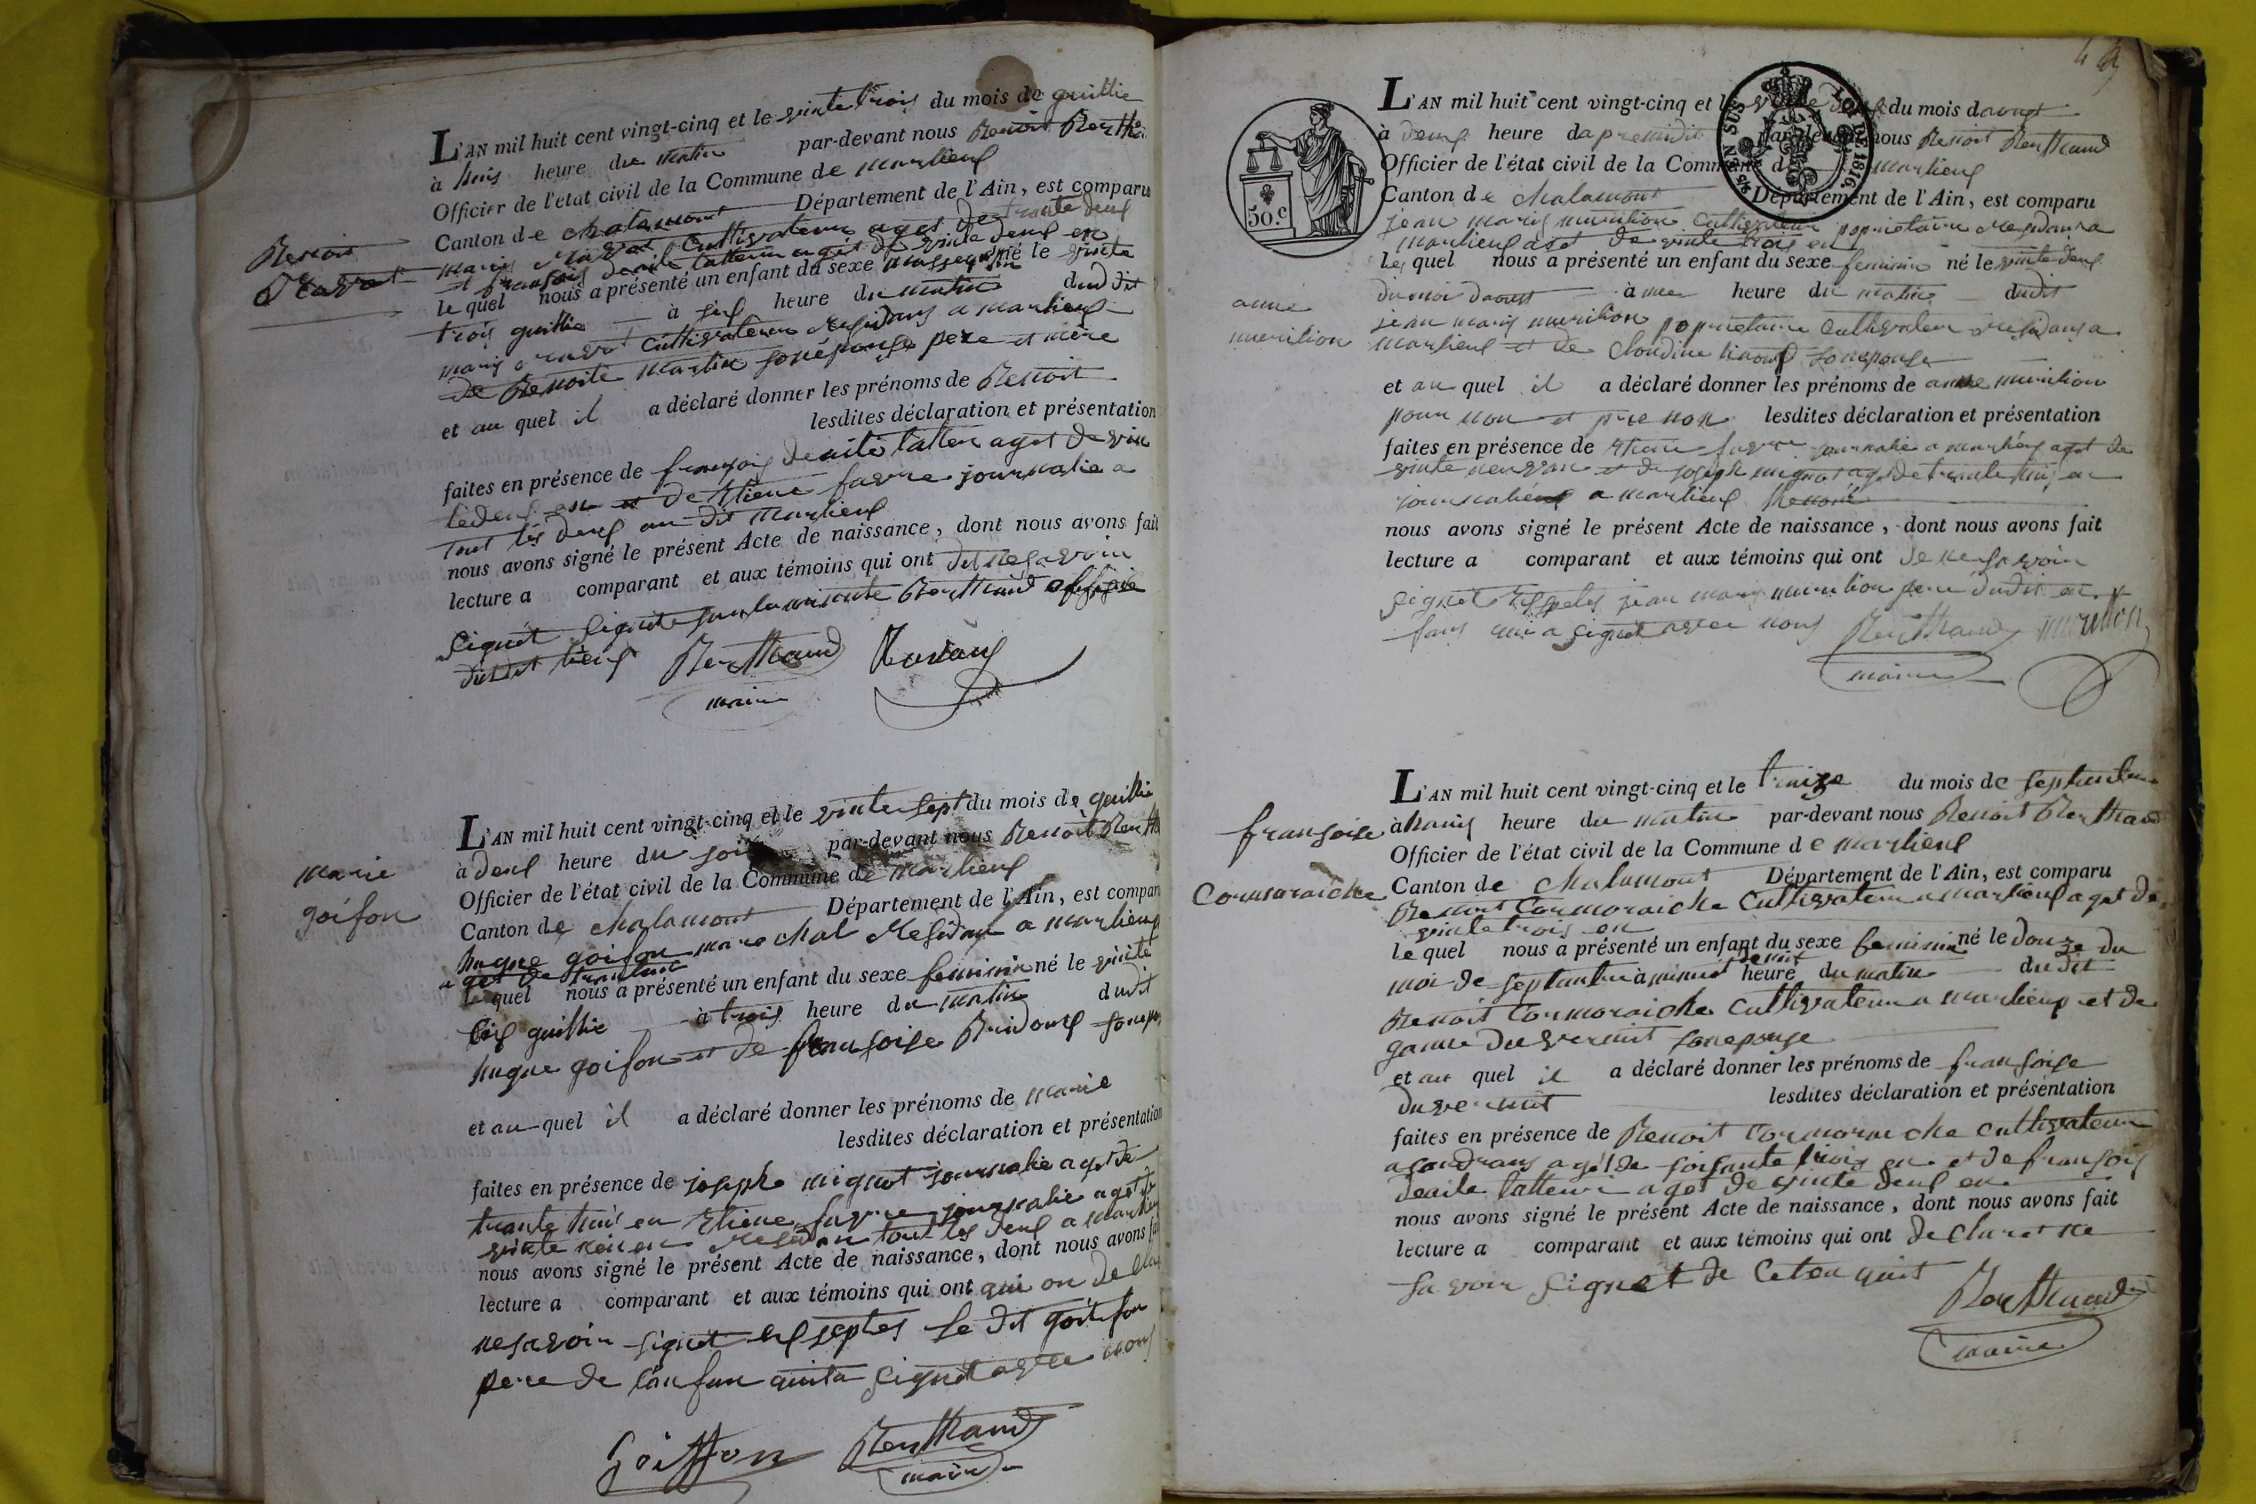 L'AN mil huit cent vingt-cinq et le vinte trois du mois de guillie
à huis heure du matin par-devant nous Benoit Berthau
Officier de l'état civil de la Commune de marlieux
Canton de chalamont Département de l'Ain, est comparu
marie cultivateur aget de trante deux
et françois tatteur aget de vinte deux en
Benoit
le quel nous a présenté un enfant du sexe né le vinte
trois guillie à six heure du matin dudit
marie cultivateur residans a marlieux
de Benoite martin son épouse pere et mère
et au quel il a déclaré donner les prénoms de Benoit
lesdites déclaration et présentation
faites en présence de françois aget de vin
tedeux en et de etiene favre journalie a
tout les deux au dit marlieux
nous avons signé le présent Acte de naissance, dont nous avons fait
lecture a comparant et aux témoins qui ont dit ne savoir
signét signé sur la minute Berthaud
dudit lieux Berthaud
maire
L'AN mil huit cent vingt-cinq et le vinte sept du mois de guillie
à deux heure du soir par-devant nous Benoit Berth
Officier de l'état civil de la Commune de marlieux
marie
goifon
Canton de chalamont Département de l'Ain, est compar
hugue goifon marechal residant a marlieux
aget de
le quel nous a présenté un enfant du sexe feminin né le vinte
six guillie à trois heure du matin dudit
hugue goifon et de françoise son epou
et au quel il a déclaré donner les prénoms de marie
lesdites déclaration et présentation
faites en présence de joseph mignot journalie aget de
trante huis en etiene favre journalie aget de
vinte neuf en residan tout les deux a marlieux
nous avons signé le présent Acte de naissance, dont nous avons fai
lecture a comparant et aux témoins qui ont qui on de clare
ne savoir signét exseptes le dit goifon
pere de l'anfan quita signét avec nous
Goiffon Berthaud
maire
49
50.c
TIMBRE LOI DE 1816
L'AN mil huit cent vingt-cinq et le vinte deux du mois daoust
à deux heure da premidit par-devant nous Benoit Berthaud
Officier de l'état civil de la Commune de marlieux
Canton de chalamont Département de l'Ain, est comparu
jean marie murition cultivateur popriétaire residans a
marlieux aget de vinte trois en
le quel nous a présenté un enfant du sexe feminin né le vinte deux
du moi daoust à une heure du matin dudit
anne
murition
jean marie murition popriétaire cultivateur residans a
marlieux et de clondine son epouse
et au quel il a déclaré donner les prénoms de anne murition
pour non et prenon lesdites déclaration et présentation
faites en présence de etiene favre journalie a marlieux aget de
vinte neuf en et de joseph mignot aget de trante huis en
journalie a marlieux
nous avons signé le présent Acte de naissance, dont nous avons fait
lecture a comparant et aux témoins qui ont de ne savoir
signét jean marie murition pere dudit en
fans qui a signét avec nous Berthaud murition
maire
L'AN mil huit cent vingt-cinq et le traize du mois de septambre
à huis heure du matin par-devant nous Benoit Berthaud
Officier de l'état civil de la Commune de marlieux
françoise
Cormoraiche
Canton de chalamont Département de l'Ain, est comparu
Benoit Cormoraiche cultivateur a marlieux aget de
vinte trois en
le quel nous a présenté un enfant du sexe feminin né le douze du
moi de septambre à minuit heure du matin dudit
Benoit Cormoraiche cultivateur a marlieux et de
ganne duvernit son epouse
et au quel il a déclaré donner les prénoms de françoise
duvernit lesdites déclaration et présentation
faites en présence de Benoit Cormoraiche cultivateur
a condrans agét de soisante trois en et de françois
tatteur aget de vinte deux en
nous avons signé le présent Acte de naissance, dont nous avons fait
lecture a comparant et aux témoins qui ont declaret ne
savoir signet de ce Berthaud
maire